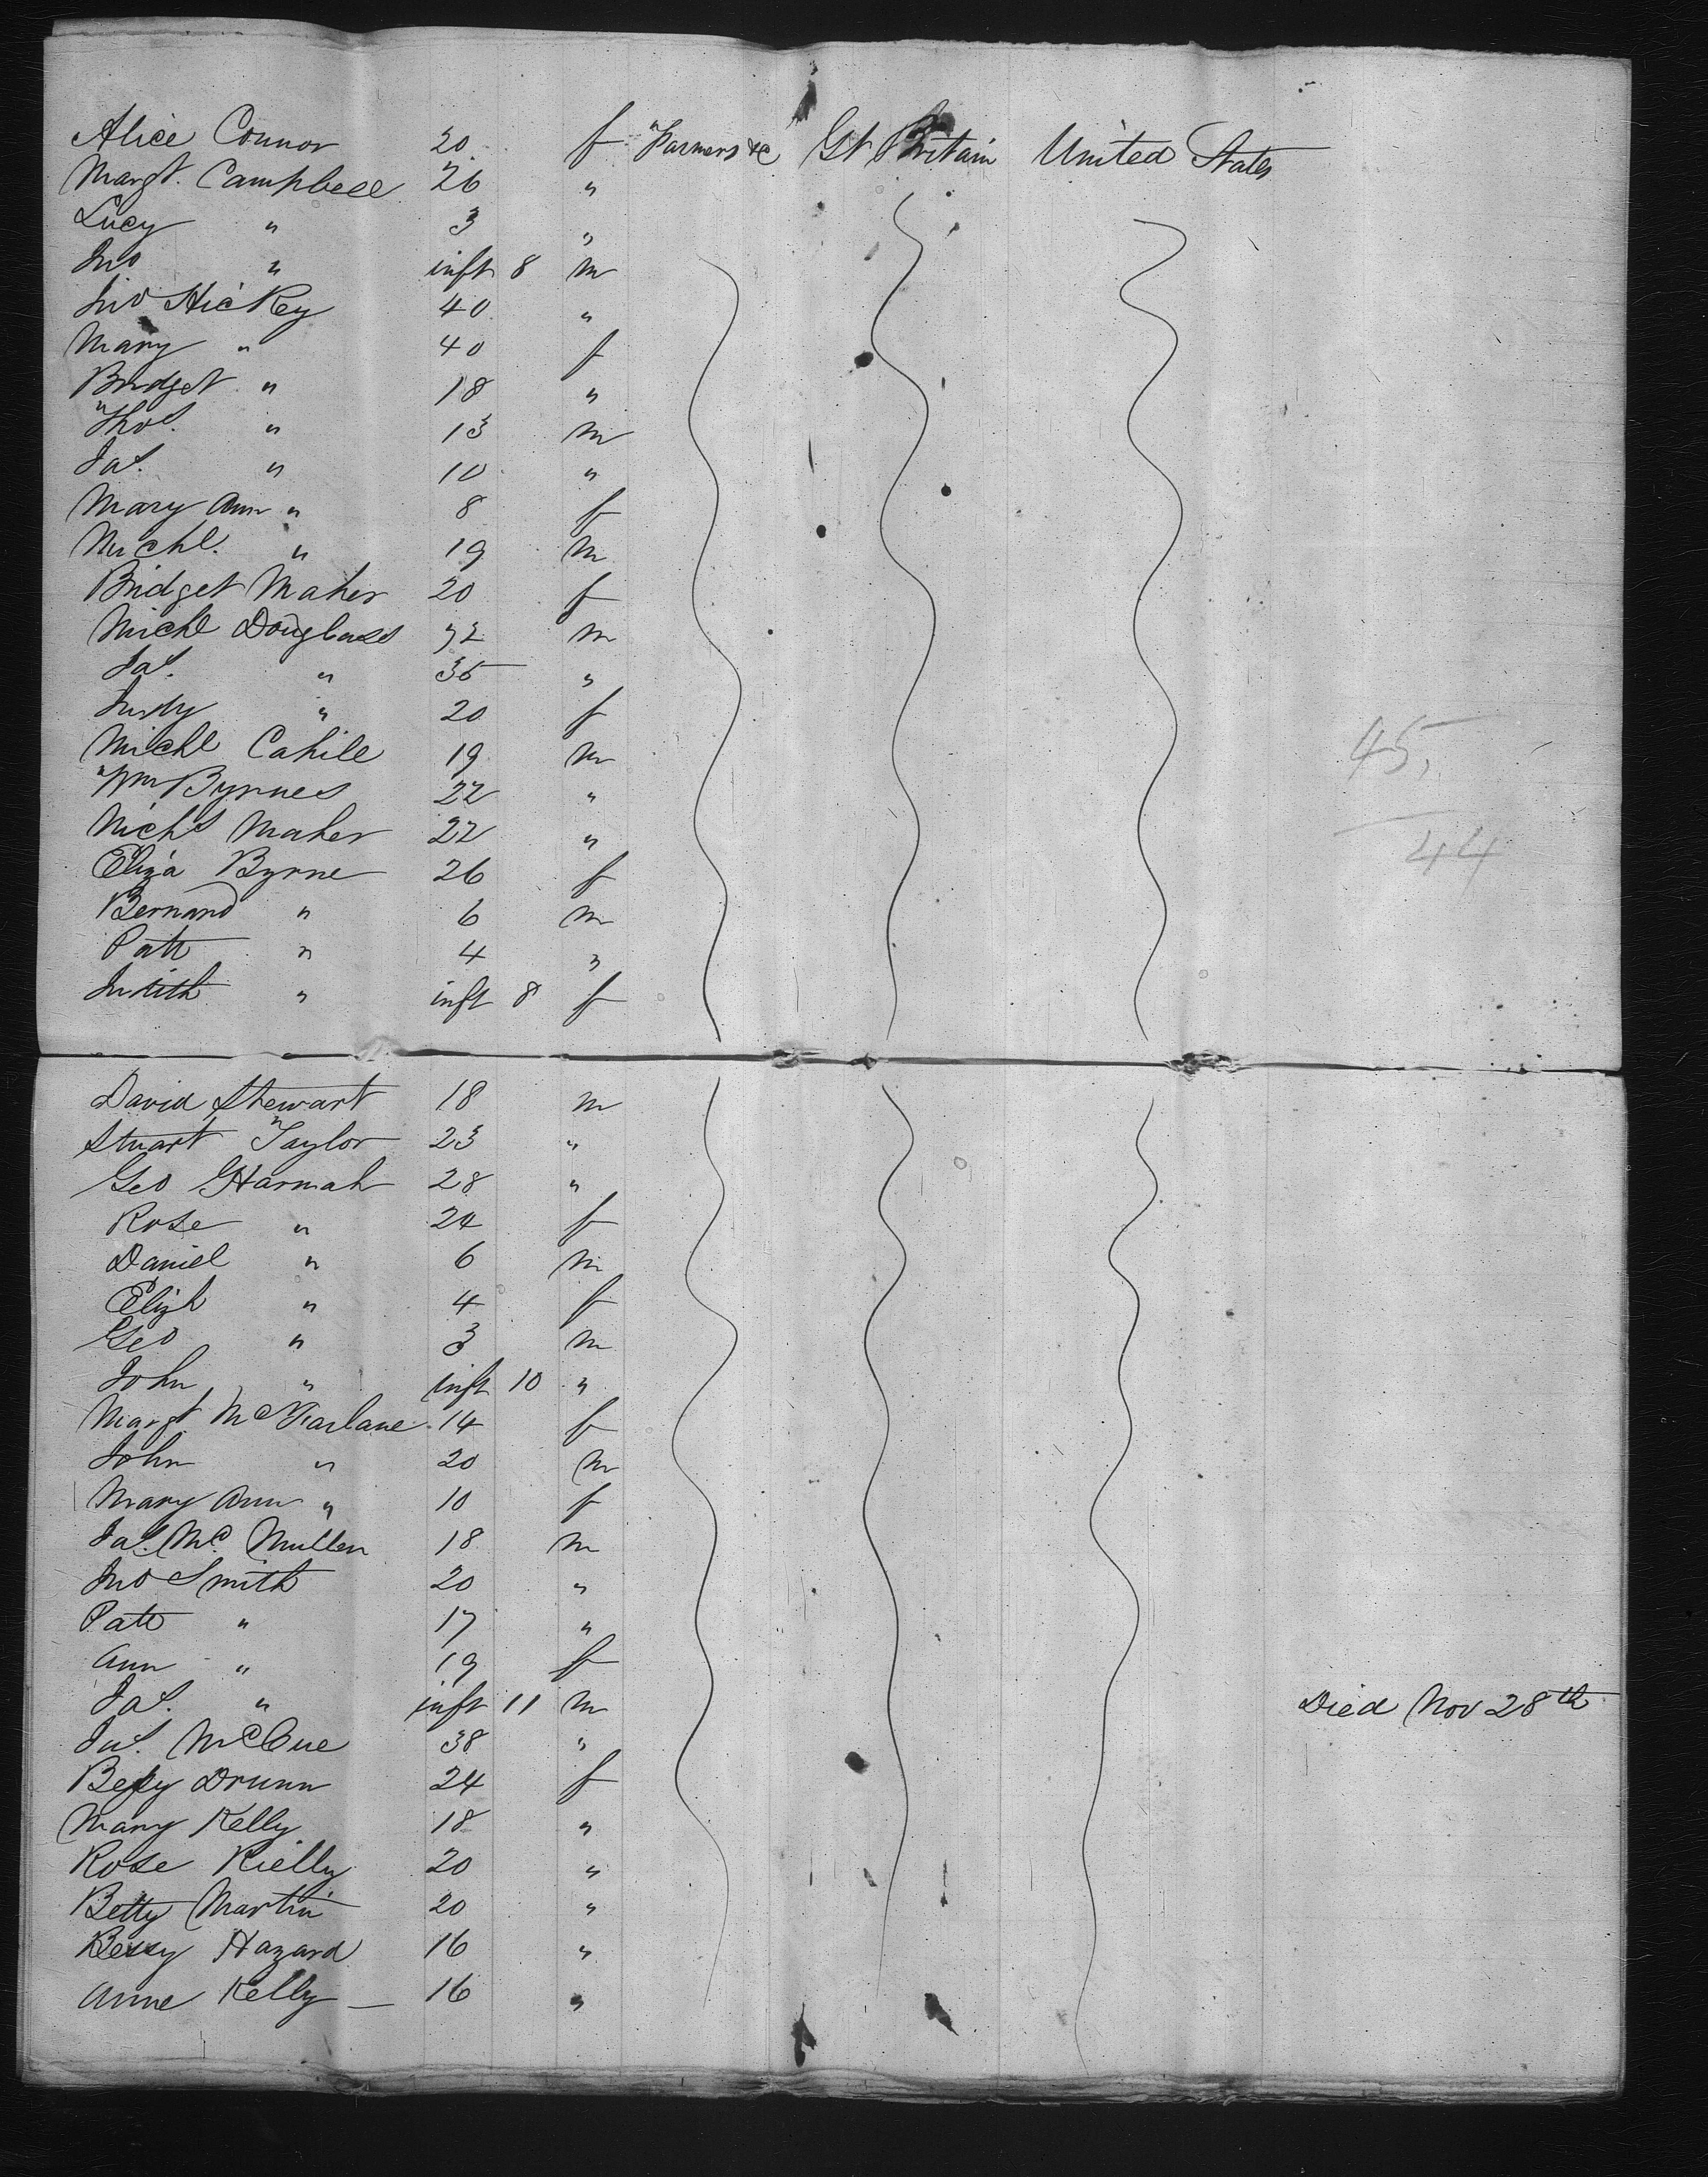 Alice Connor 20 f Farmers &c Gt Britain United States
Margt. Campbell 26 "
Lucy " 3 "
Jno " inft 8 m
Jno Hickey 40 "
Mary " 40 f
Bridget " 18 "
Thos. " 13 m
Jas. " 10 "
Mary Ann " 8 f
Michl. " 19 m
Bridget Maher 20 f
Michl Douglass 32 m
Jas. " 35 "
Judy " 20 f
Michl Cahill 19 m
45,
Wm Byrnes 22 "
Michl Maher 22 "
44
Eliza Byrne 26 f
Bernard " 6 m
Patt " 4 "
Judith " inft 8 f
David Stewart 18 m
Stuart Taylor 23 "
Geo Harmah 28 "
Rose " 24 f
Daniel " 6 m
Elizh " 4 f
Geo " 3 m
John " inft 10 "
Margt McFarlane 14 f
John " 20 m
Mary Ann " 10 f
Jas. Mc Mullen 18 m
Jno Smith 20 "
Patt " 17 "
Ann " 19 f
Jas. " inft 11 m Died Nov 28th
Jas. McCue 38 "
Bessy Drunn 24 f
Mary Kelly 18 "
Rose Rielly 20 "
Betty Martin 20 "
Bessy Hazard 16 "
Anne Kelly — 16 "